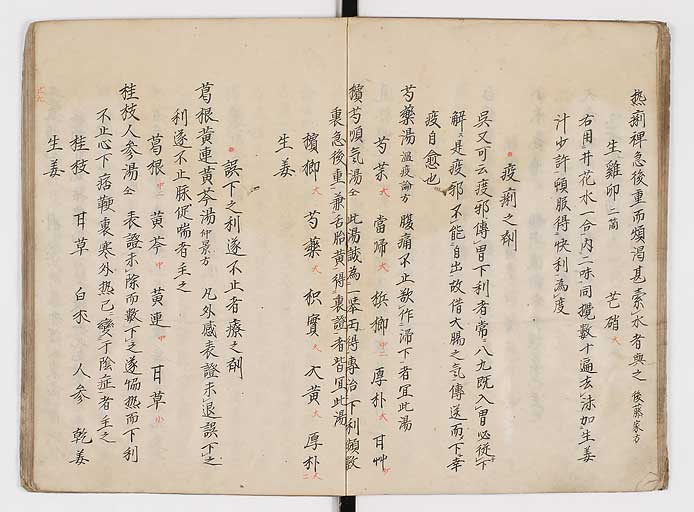 热痢裡急後重而煩渇甚索水者與之 後藤家方
生雞卵 三箇 芒硝 大
右用井花水一合内二味同攪数十遍去沫加生姜
汁少許頓服得快利為度
疫痢之剤
吳又可云疫邪傳胃下利者常八九既入胃必從下
解是疫邪不能自出故借大腸之氣傳送而下幸
疫自愈也
芍藥湯 温疫論方 腹痛不止欲作滞下者宜此湯
芍藥 大 當帰 大 梹榔 中二 厚朴 大 甘艸 少
檳芍順気湯 仝 此湯該為一挙両得専治下利頻数
裏急後重兼舌胎黄得裏證者皆宜此湯
檳榔 大 芍藥 枳實 大 大黄 大 厚朴 大二
生姜
誤下之利遂不止者療之剤
葛根黄連黄芩湯 仲景方 凡外感表證未退誤下之
利遂不止脉促喘者主之
葛根 中二 黄芩 中 黄連 中 甘草 小
桂枝人參湯 仝 表證未除而數下之遂恊熱而下利
不止心下痞鞕裏寒外热已變于陰症者主之
桂枝 甘草 白朮 人參 乾姜
生姜